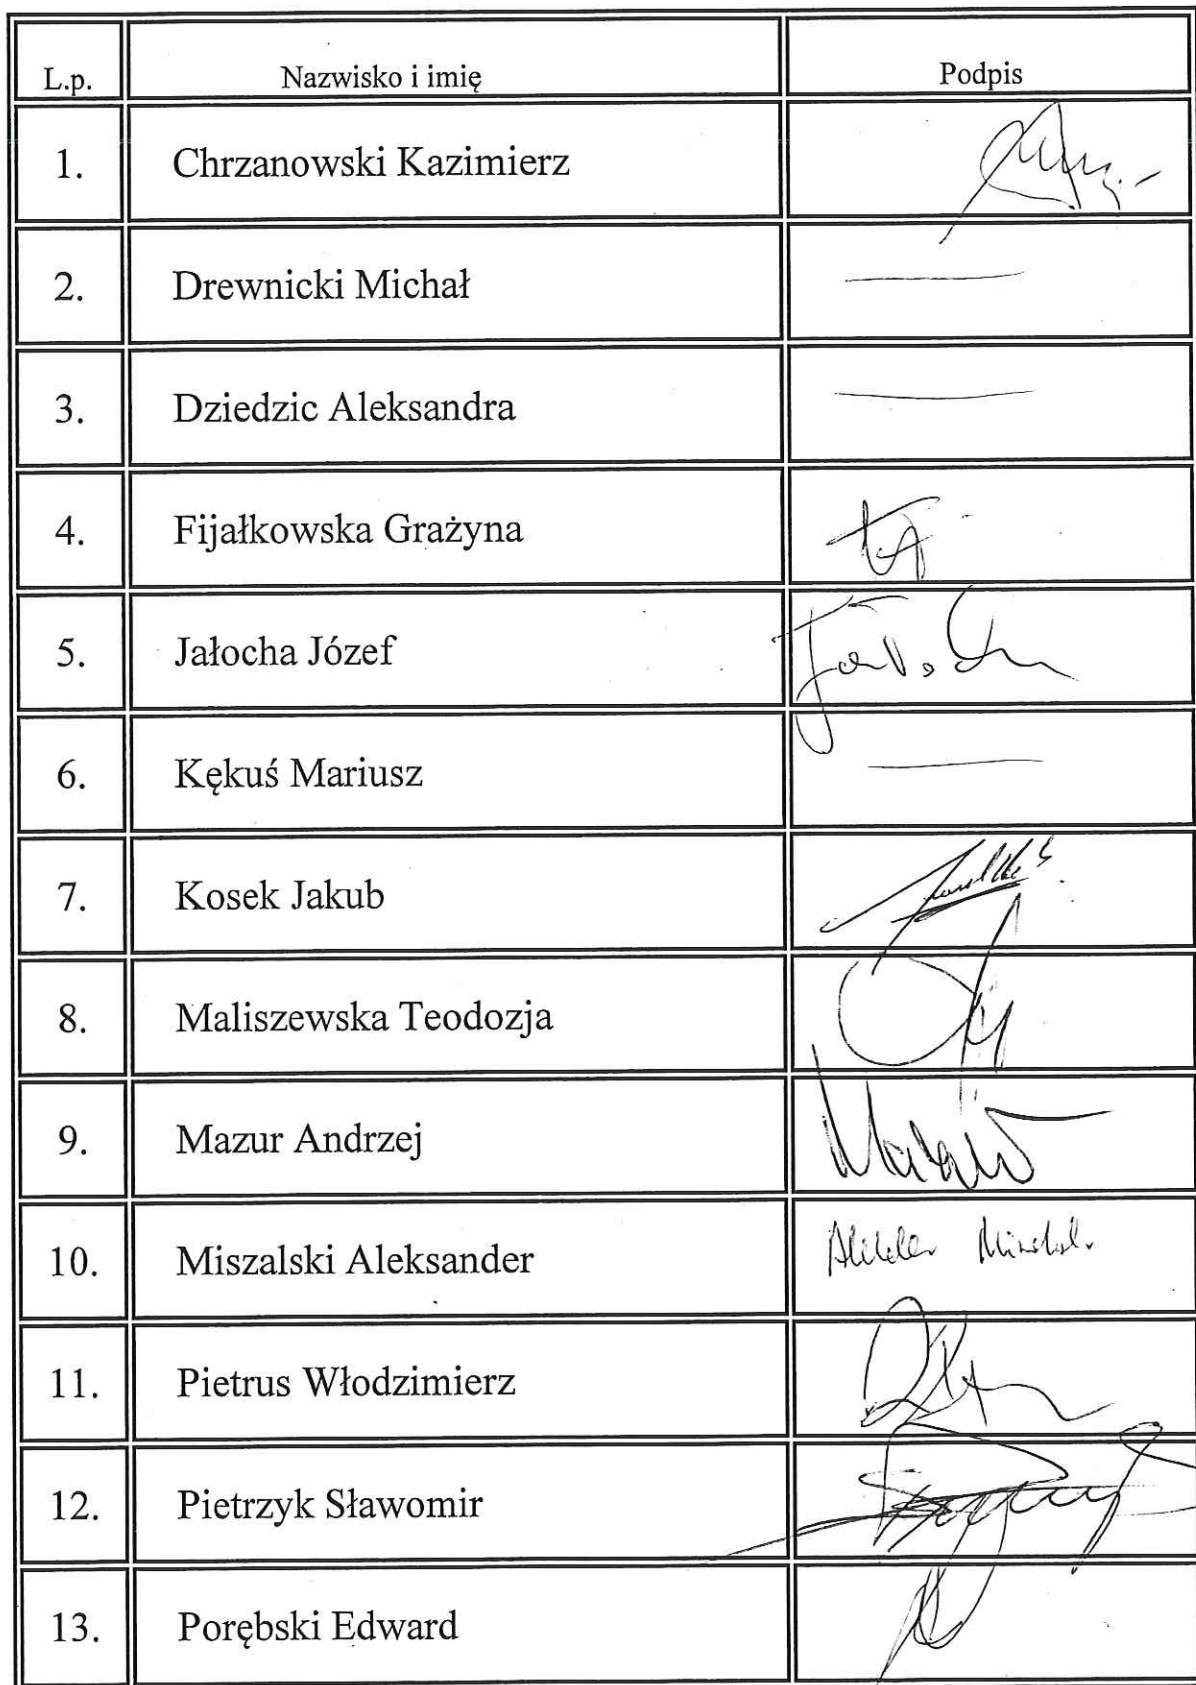 L.p. Nazwisko i imię Podpis
1. Chrzanowski Kazimierz
2. Drewnicki Michał —
3. Dziedzic Aleksandra —
4. Fijałkowska Grażyna
5. Jałocha Józef
6. Kękuś Mariusz —
7. Kosek Jakub
8. Maliszewska Teodozja
9. Mazur Andrzej
10. Miszalski Aleksander
11. Pietrus Włodzimierz
12. Pietrzyk Sławomir
13. Porębski Edward